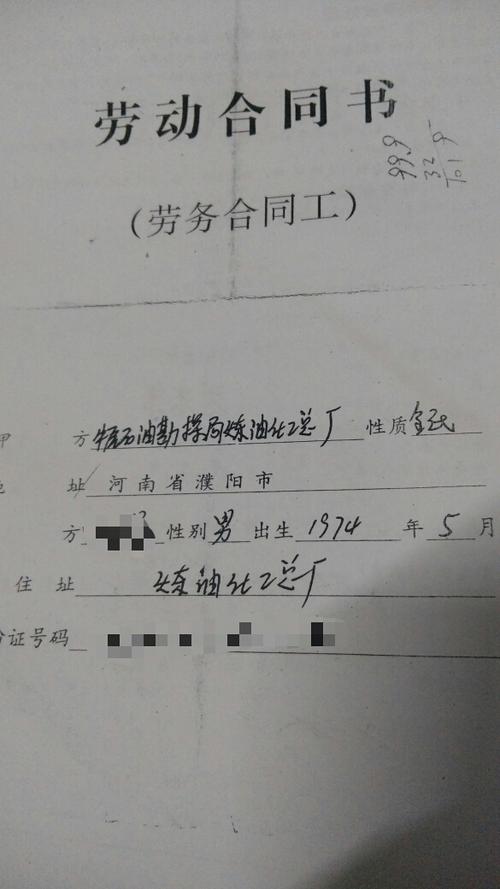 劳动合同书
99.9
32
701 9
(劳务合同工)
甲 方 中原石油勘探局炼油化工总厂 性质 全民
地 址 河南省濮阳市
方 性别 男 出生 1974 年 5 月
住址 炼油化工总厂
份证号码